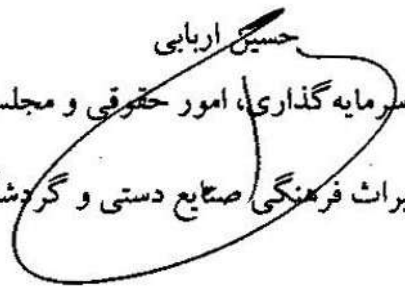 حسین اربابی
سرمایه گذاری، امور حقوقی و مجلس
یراث فرهنگی صنایع دستی و گردش